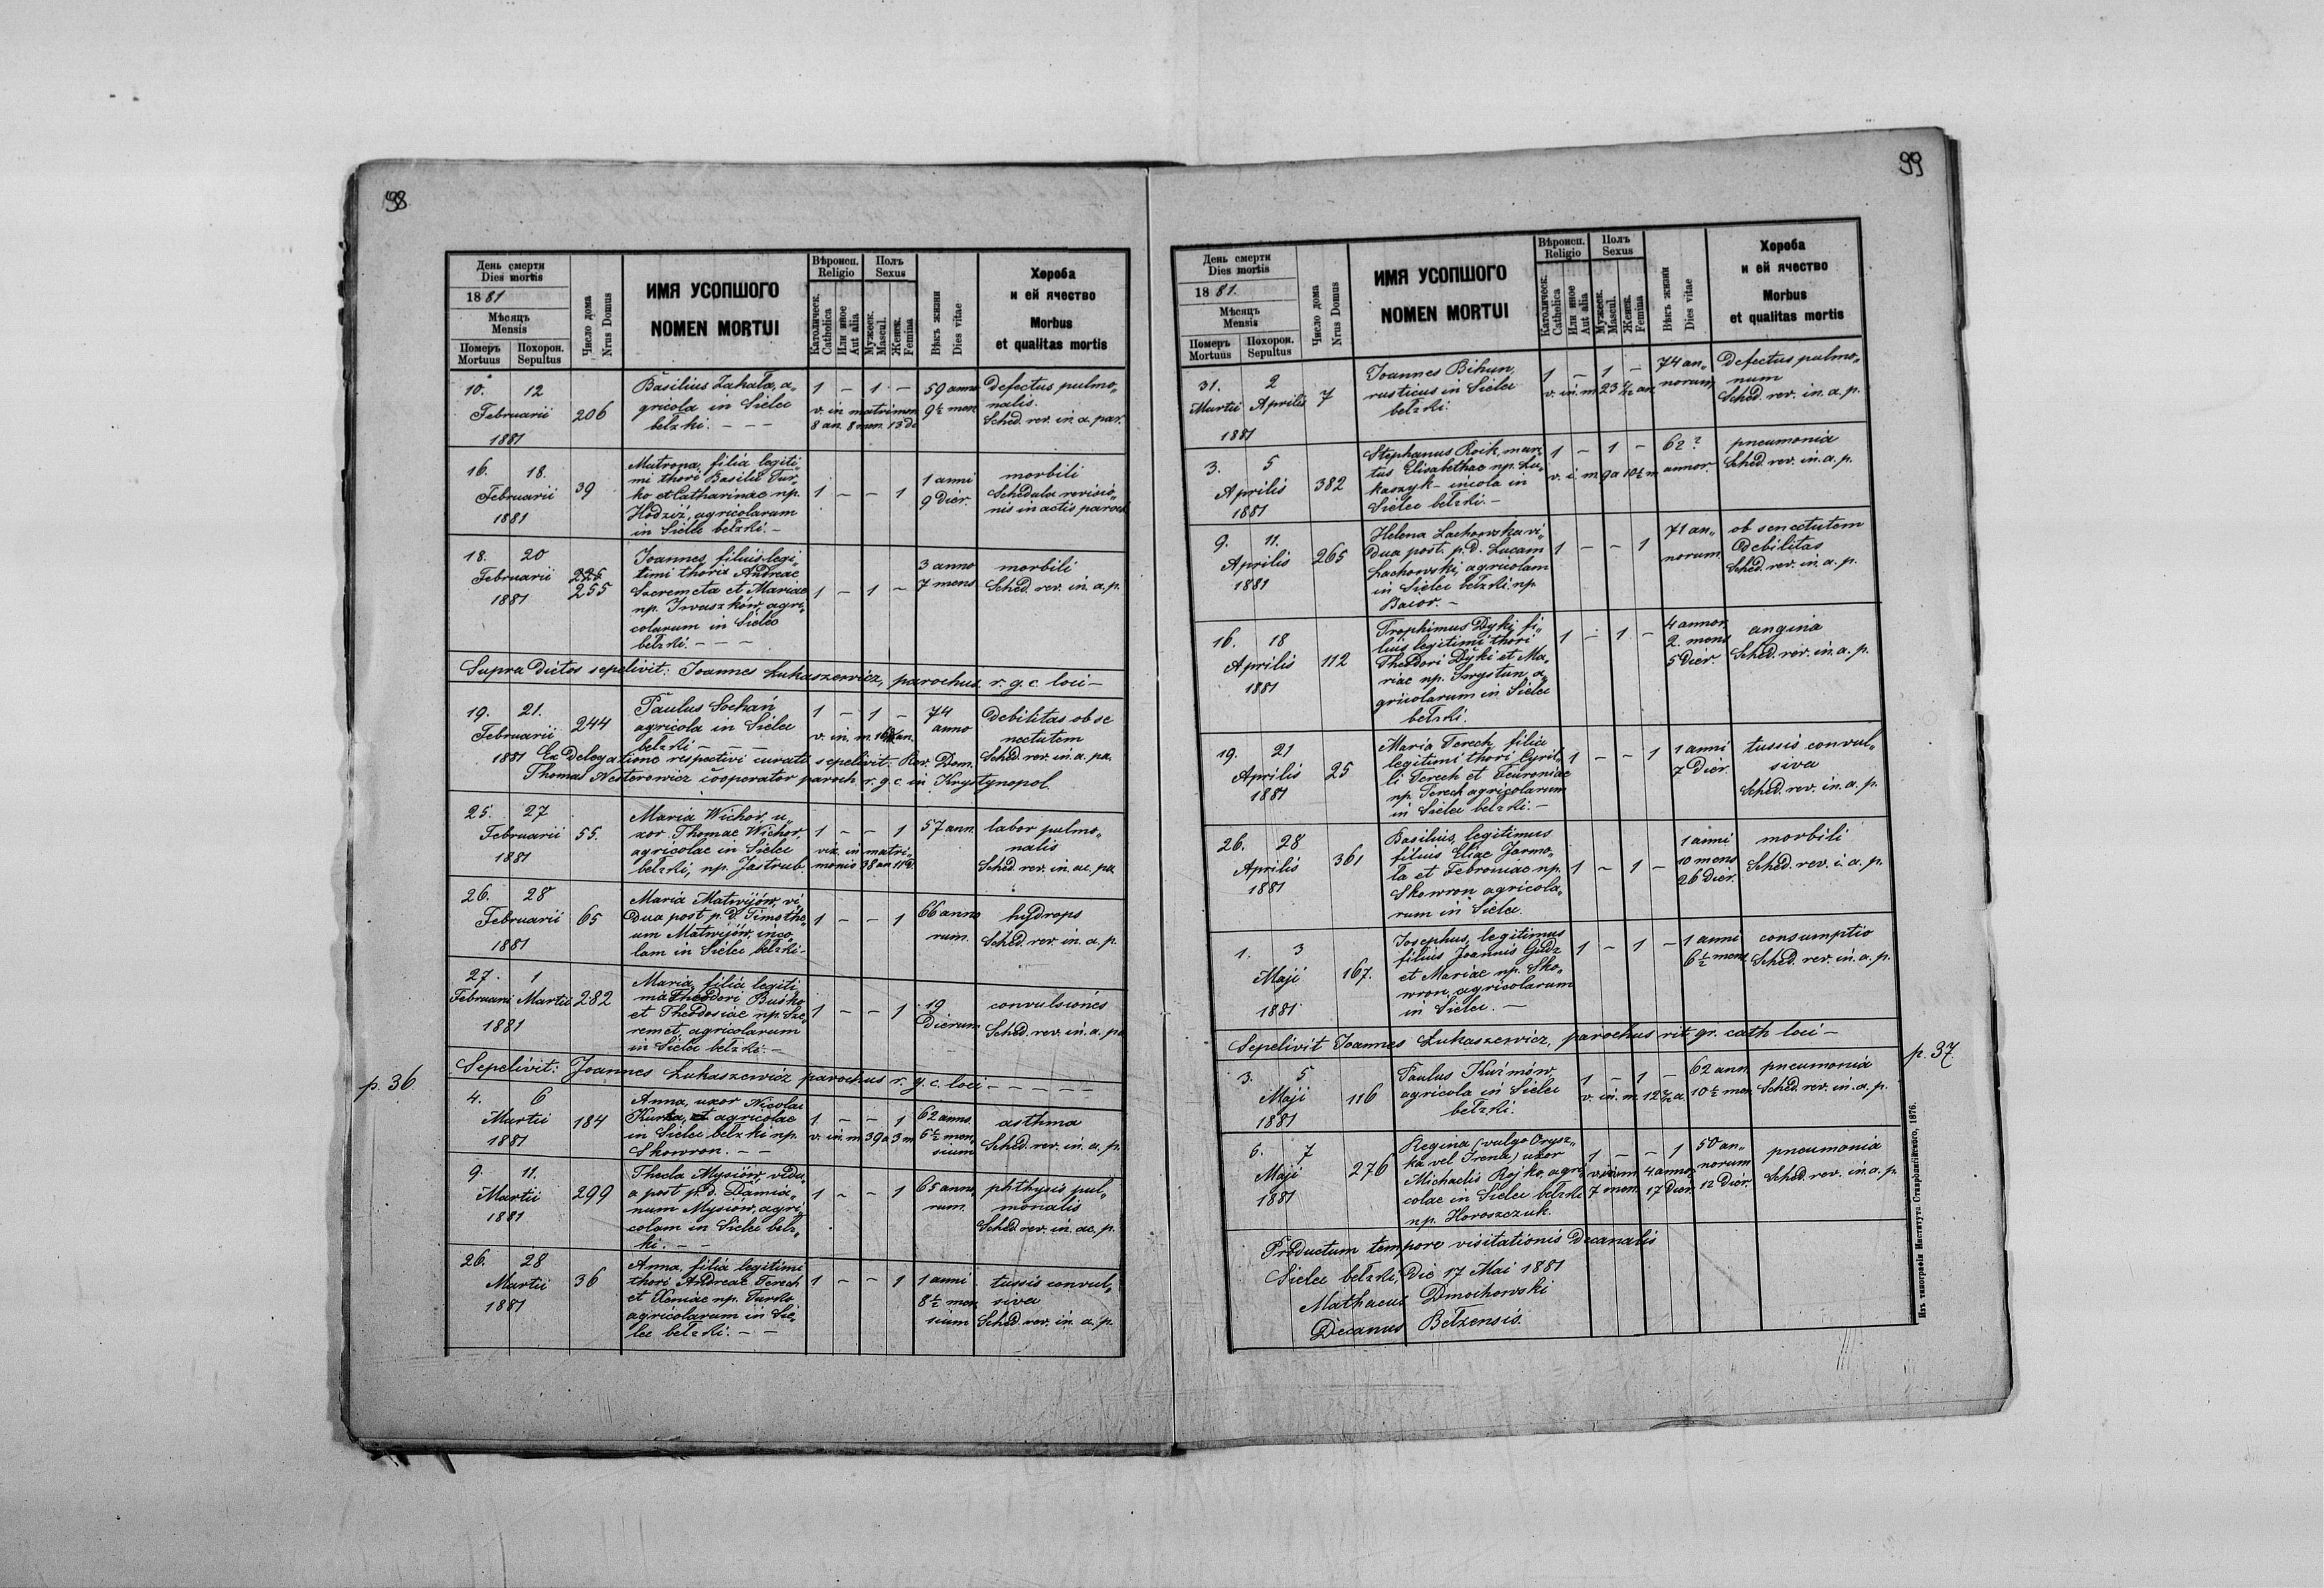 98
День смерти
Dies mortis
1881
Мѣсяцъ
Mensis
Померъ Похорон.
Mortuus Sepultus
Число дома
Nrus Domus
ИМЯ УСОПШОГО
NOMEN MORTUI
Вѣроисп.
Religio
Католическ.
Catholica
Или иное
Aut alia
Полъ
Sexus
Мужеск.
Mascul.
Женск.
Femina
Вѣкъ жизни
Dies vitae
Хороба
и ей ячество
Morbus
et qualitas mortis
10. 12
Februarii
1881
206
Basilius Zahała, a„
gricola in Sielec
bełzki. - - -
1 - 1 -
v. in matrimon
8 an. 8 mon. 13 di
59 anno
9½ men
Defectus pulmo„
nalis.
Sched. rev. in. a. par.
16. 18.
Februarii
1881
39
Matrona, filia legiti„
mi thori Basilii Tur„
ko et Catharinae np.
Hodziż, agricolarum
in Sielec bełzki. -
1 - - 1
1 anni
9 dier.
morbili
Schedula revisio„
nis in actis paroch
18. 20
Februarii
1881
225
255
Joannes, filius legi„
timi thori Andreae
Szeremeta et Mariae
np. Iwaszków, agri„
colarum in Sielec
bełzki. - - -
1 - 1 -
3 anno
7 mens
morbili
Sched. rev. in. a. p.
Supra dictos sepelivit: Joannes Łukaszewicz, parochus r. g. c. loci -
19. 21.
Februarii
1881
244
Paulus Sochań
agricola in Sielec
bełzki - - -
1 - 1 -
v. in. m.
74
anno
Debilitas ob se
nectutem
Sched. rev. in. a. pa.
Ex Delegatione respectivi curati sepelivit: Rev. Dom.
Thomas Nesterowicz cooperator paroch r. g. c. in Krystynopol.
25. 27
Februarii
1881
55.
Maria Wichor, u„
xor Thomae Wichor,
agricolae in Sielec
bełzki, np. Jastrub.
1 - - 1
vix. in matri„
monio 38 an 11 d.
57 ann.
labor pulmo„
nalis
Sched. rev. in. ac. pa
26. 28
Februarii
1881
65
Maria Matwijów, vi„
dua post p. d. Timothe
um Matwijów, inco„
lam in Sielec bełzki -
1 - - 1
66 anno
rum.
hydrops
Sched. rev. in. a. p.
27. 1
Februarii Martii
1881
282
Maria, filia legiti„
ma Theodori Buśko
et Theodosiae np. Sze„
remet, agricolarum
in Sielec bełzki. -
1 - - 1
19
Dierum
convulsiones
Sched. rev. in. a. pa
Sepelivit: Joannes Łukaszewicz parochus r. g. c. loci - - - - -
p. 36.
4. 6
Martii
1881
184
Anna, uxor Nicolai
Kurka, et agricolae
in Sielec bełzki np.
Skowron. - -
1 - - 1
v. in. m 39 a 3 m
62 anno.
6½ men„
sium
asthma
Sched. rev. in. a. p.
9. 11.
Martii
1881
299
Thecla Mysiów, vidu„
a post p. d. Damia„
num Mysiow, agri„
colam in Sielec bełz„
ki. - -
1 - - 1
65 anno
rum.
phthysis pul„
monalis
Sched. rev. in. ac. p.
26. 28
Martii
1881
36
Anna, filia legitimi
thori Andreae Terech
et Xeniae np. Turko
agricolarum in Sie„
lec bełzki. - -
1 - - 1
1 anni
8½ men
sium
tussis convul„
siva
Sched. rev. in. a. p.
99
День смерти
Dies mortis
1881.
Мѣсяцъ
Mensis
Померъ Похорон.
Mortuus Sepultus
Число дома
Nrus Domus
ИМЯ УСОПШОГО
NOMEN MORTUI
Вѣроисп.
Religio
Католическ.
Catholica
Или иное
Aut alia
Полъ
Sexus
Мужеск.
Mascul.
Женск.
Femina
Вѣкъ жизни
Dies vitae
Хороба
и ей ячество
Morbus
et qualitas mortis
31. 2
Martii Aprilis
1881
7
Joannes Bihun,
rusticus in Sielec
bełzki.
1 - 1 -
v. in. m 23
74 an„
norum
Defectus pulmo„
num
Sched. rev. in. a. p.
3. 5
Aprilis
1881
382
Stephanus Roik, mari„
tus Elisabethae np. Łu„
kaszyk - incola in
Sielec bełzki. -
1 - 1 -
v. i. m 9 a 10½ m
62 ?
annor
pneumonia
Sched. rev. in. a. p.
9. 11.
Aprilis
1881
265
Helena Lachowska vi„
dua post. p. d. Lucam
Lachowski, agricolam
in Sielec bełzki np
Bacor. -
1 - - 1
71 an„
norum
ob senectutem
Debilitas
Sched. rev. in. a. p.
16. 18
Aprilis
1881
112
Trophimus Dyki, fi„
lius legitimi thori
Theodori Dyki et Ma„
riae np. Swystun, a„
gricolarum in Sielec
bełzki.
1 - 1 -
4 annor.
2. mens
5 dier.
angina
Sched. rev. in. a. p.
19. 21
Aprilis
1881
25
Maria Terech, filia
legitimi thori Cyril„
li Terech et Feuroniae
np. Terech agricolarum
in Sielec bełzki. -
1 - - 1
1 anni
7 dier.
tussis convul„
siva
Sched. rev. in. a. p.
26. 28
Aprilis
1881
361
Basilius, legitimus
filius Eliae Jarmo„
ła et Febroniae np.
Skowron agricola„
rum in Sielec.
1 - 1 -
1 anni
10 mens
26 dier.
morbili
Sched. rev. i. a. p.
1. 3
Maji
1881
167.
Josephus, legitimus
filius Joannis Gudz
et Mariae np. Sko„
wron, agricolarum
in Sielec. -
1 - 1 -
1 anni
6½ mens.
consumptio
Sched. rev. in. a. p.
Sepelivit Joannes Łukaszewicz, parochus rit. gr. cath loci -
p. 37
3. 5
Maji
1881
116
Paulus Kuźmów,
agricola in Sielec
bełzki.
1 - 1 -
v. in. m.
62 ann.
10½ men
pneumonia
Sched. rev. in. a. p.
6. 7
Maji
1881
276
Regina (vulgo Orysz„
ka vel Irena) uxor
Michaelis Rojko, agri„
colae in Sielec bełzki
np. Horoszczuk.
1 - - 1
4 anno.
7 men. 17 dier.
50 an„
norum
12 dier.
pneumonia
Sched. rev. in. a. p.
Productum tempore visitationis Decanalis
Sielec bełzki, die 17 Mai 1881
Mathaeus Dmochowski
Decanus Bełzensis.
Изъ типографіи Института Ставропигійского, 1876.